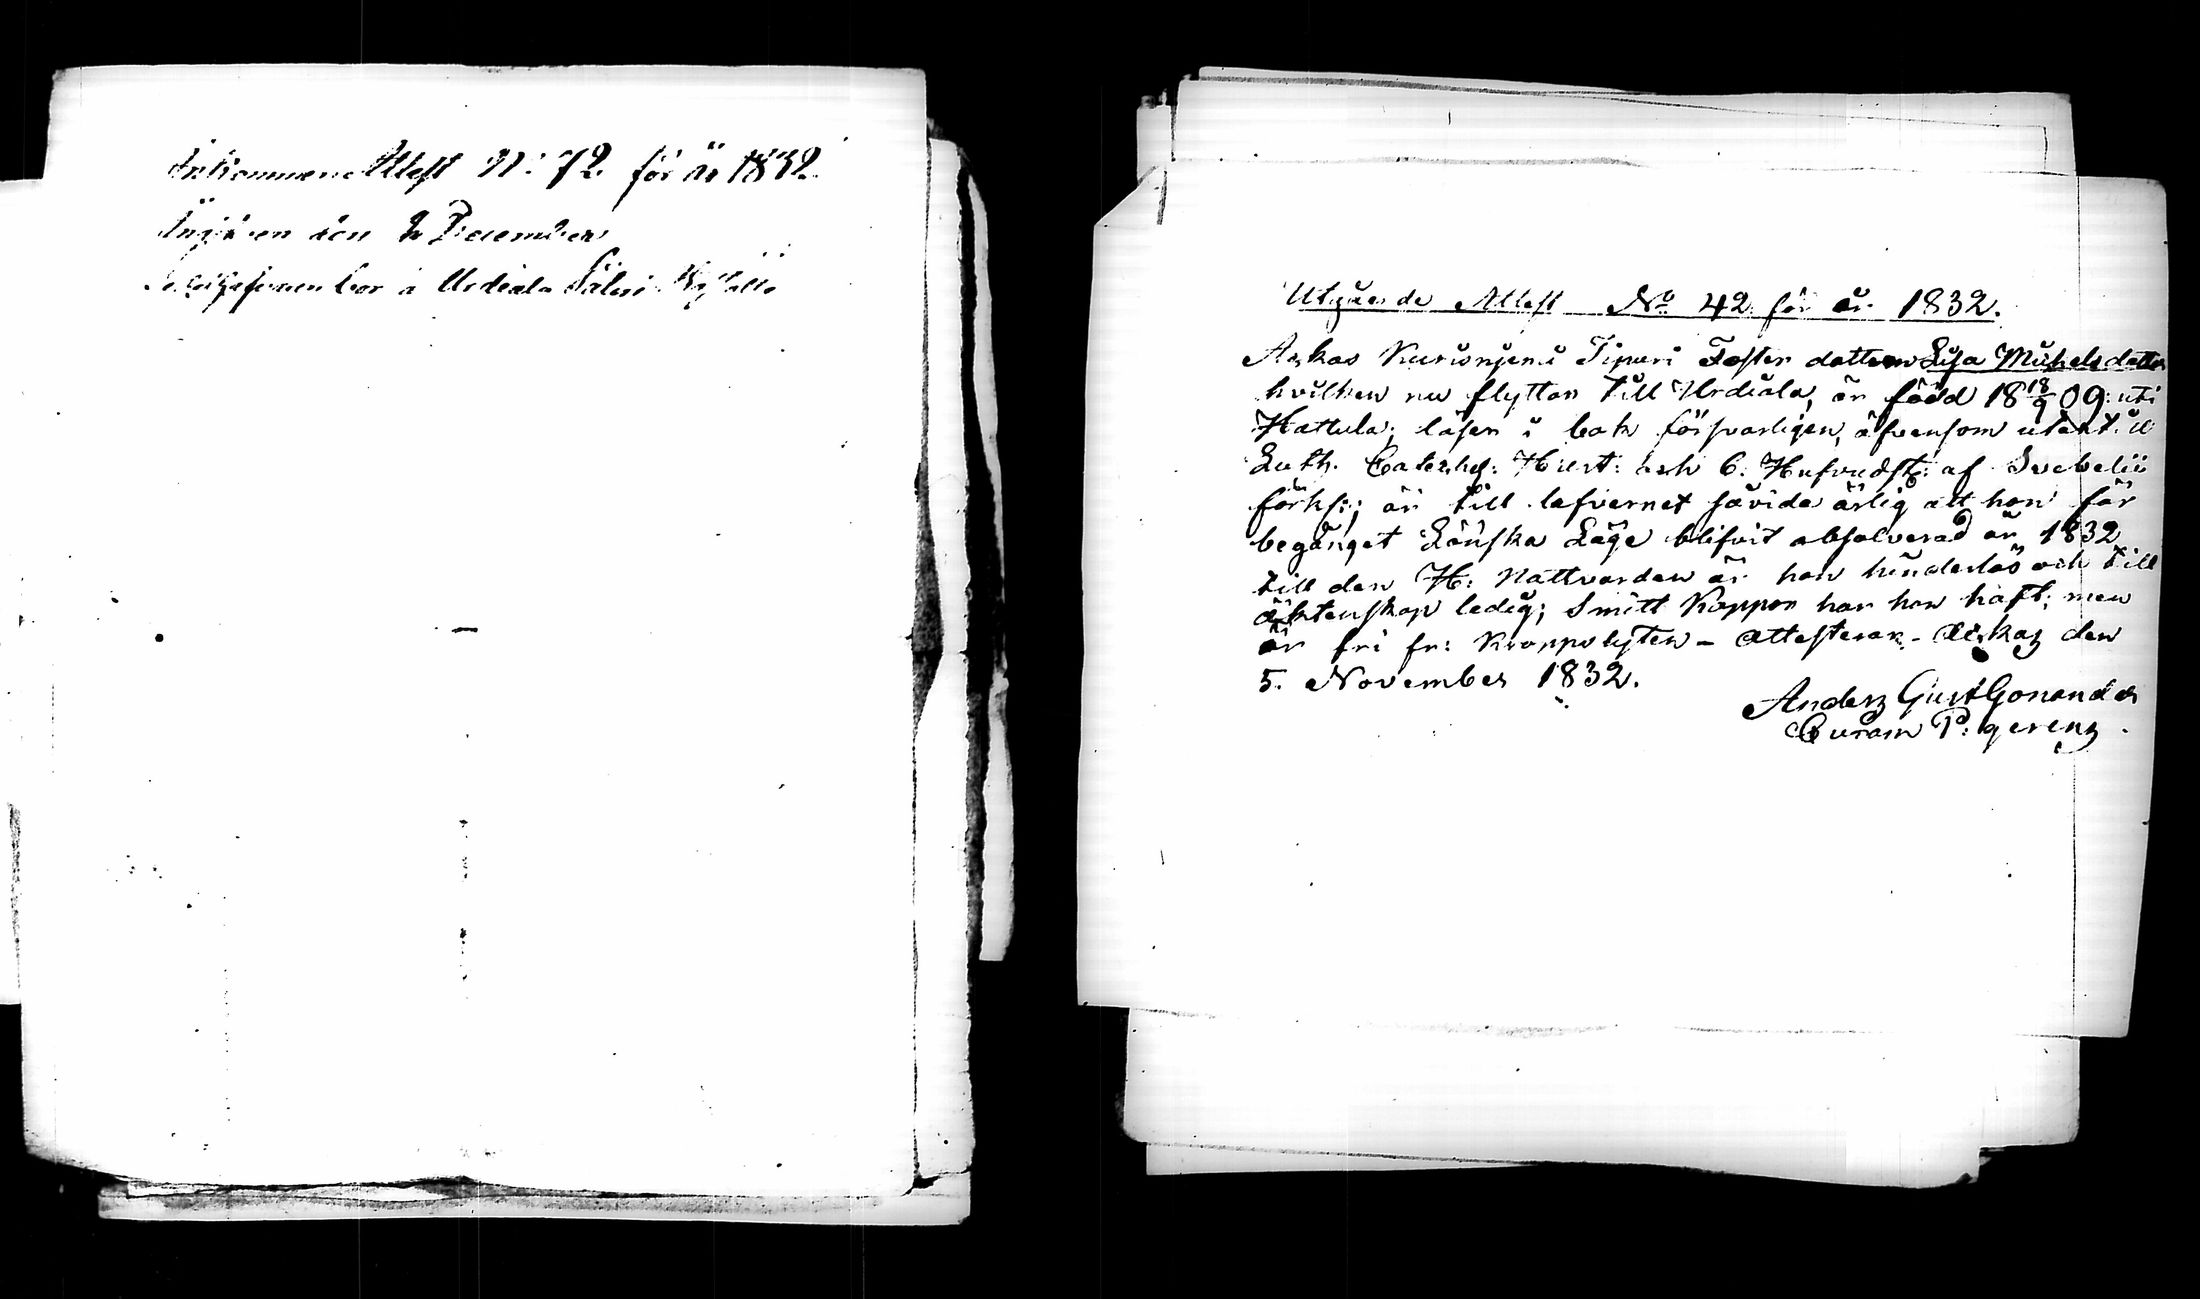 Inkommen Attest N: 72. för år 1832.
Ingifven den 2 December
bor å Urdiala Säteri
Utgående Attest No 42 för år 1832.
Askas Kurisniemi Tipuri Foster dottern Lisa Michelsdotter
hvilken nu flyttar till Urdiala, är född 18 18/9 09. uti
Hattula; läser i bok försvarligen, äfvensom utant. ur
Luth. Catechs: och 6. Hufvudst: af Svebelii
förkl:; är till lefvernet såvida ärlig att hon för
begånget Lönska Läge blifvit absolverad år 1832
till den H: Nattvarden är hon hinderlös och till
äktenskap ledig; Smitt Koppor har hon haft; men
är fri fr: Kroppslyten – attesterar. Askas den
5. November 1832.
Anders Gust Gonander
Curam P: gerens.